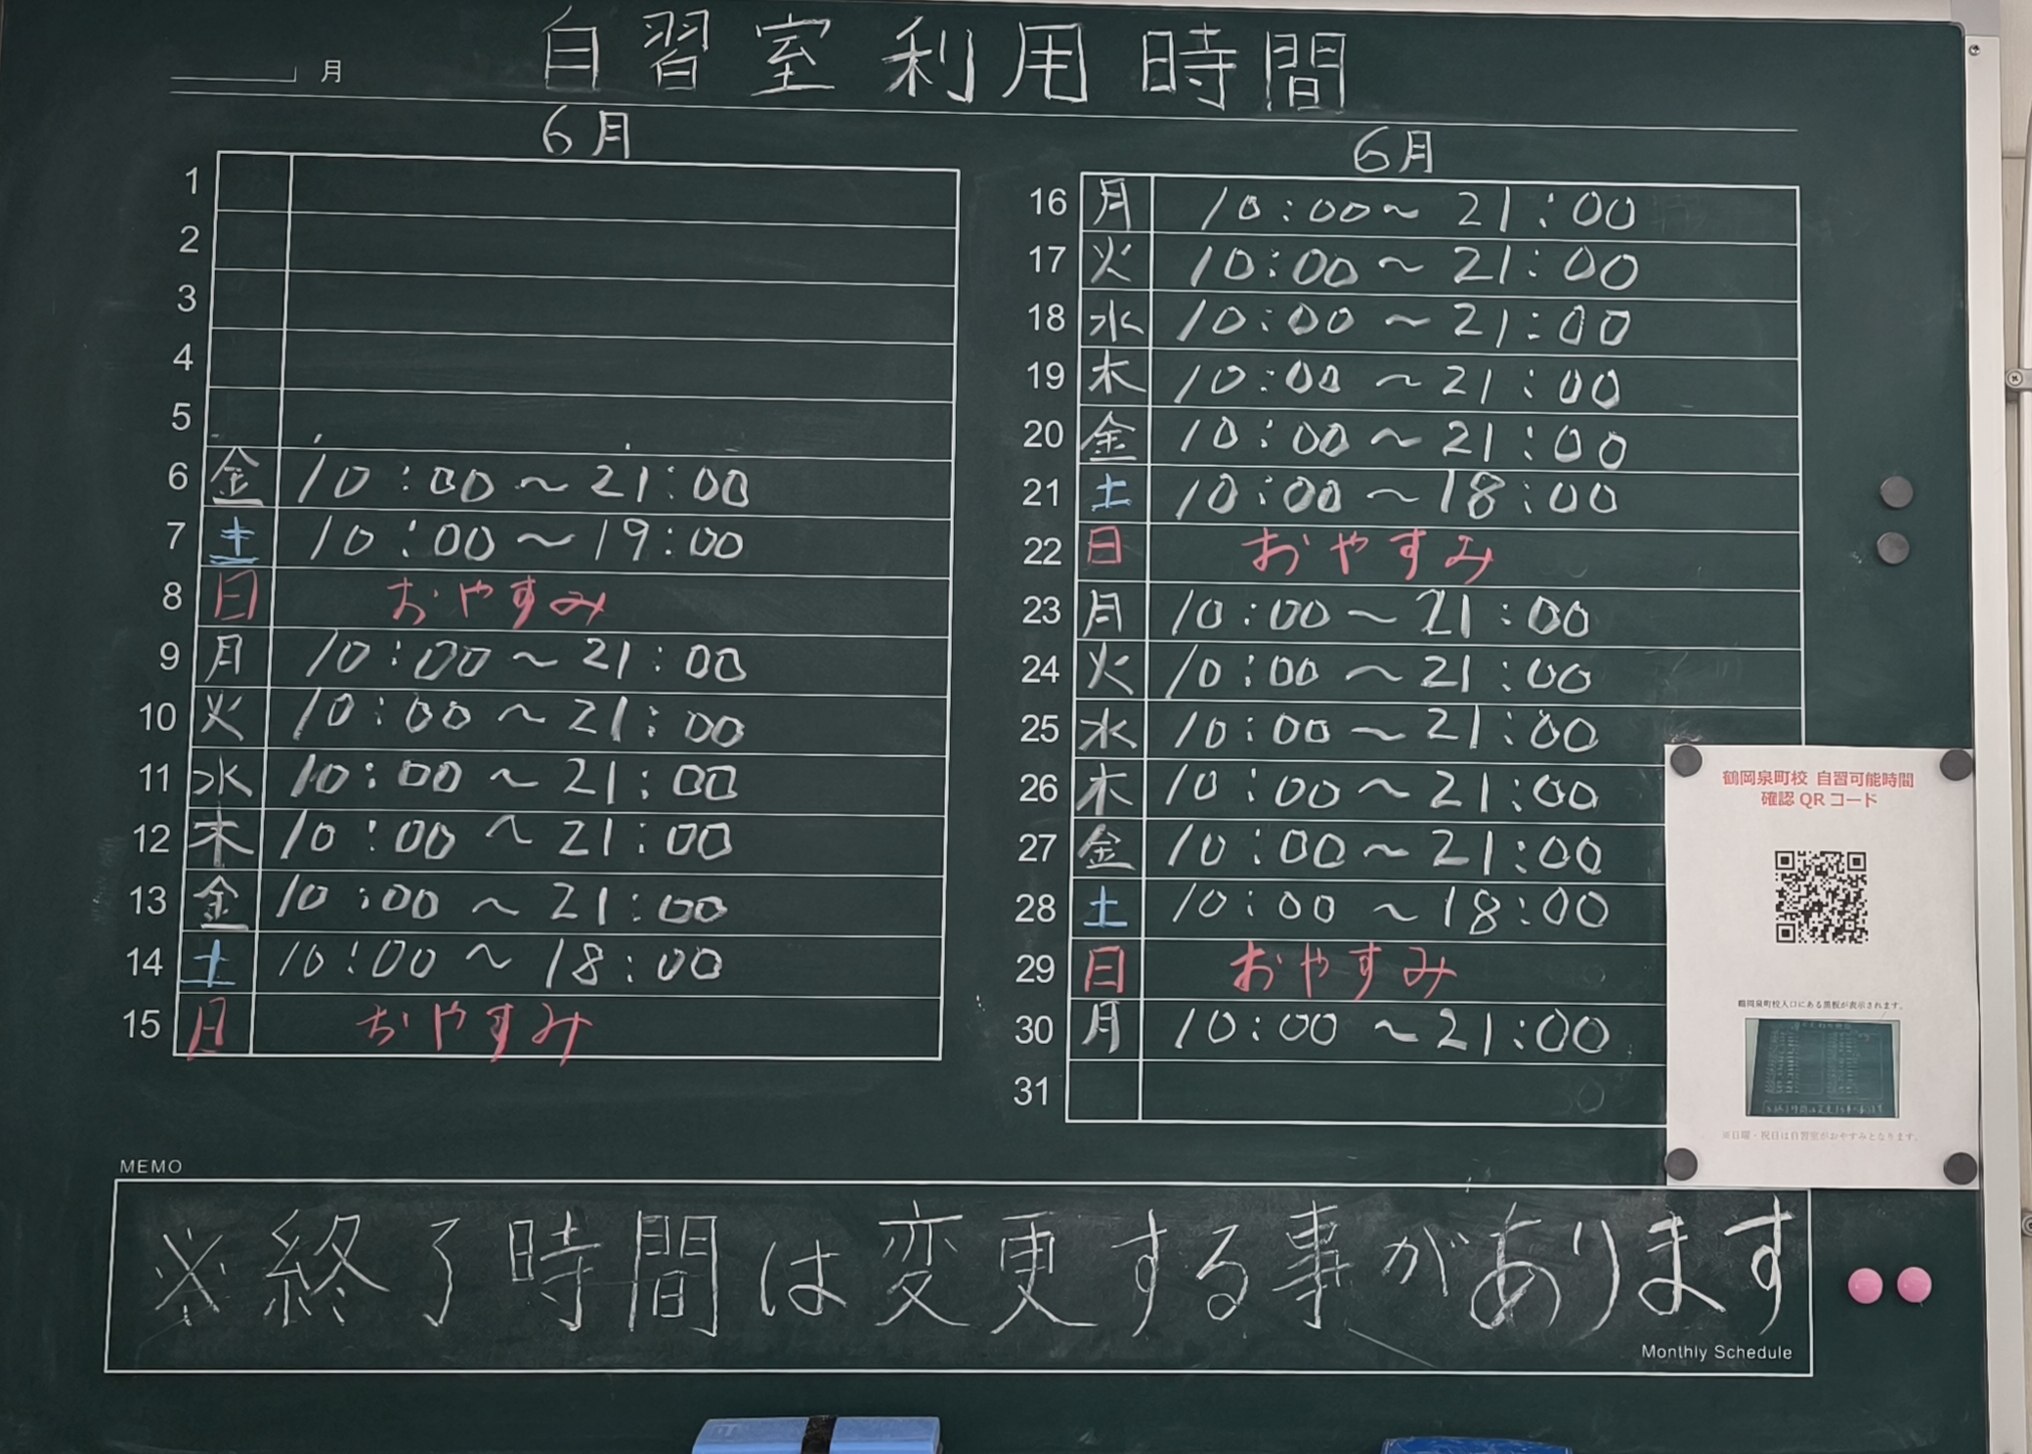 自習室利用時間
月
6月
1
2
3
4
5
6 金 10:00〜21:00
7 土 10:00〜19:00
8 日 おやすみ
9 月 10:00〜21:00
10 火 10:00〜21:00
11 水 10:00〜21:00
12 木 10:00〜21:00
13 金 10:00〜21:00
14 土 10:00〜18:00
15 日 おやすみ
6月
16 月 10:00〜21:00
17 火 10:00〜21:00
18 水 10:00〜21:00
19 木 10:00〜21:00
20 金 10:00〜21:00
21 土 10:00〜18:00
22 日 おやすみ
23 月 10:00〜21:00
24 火 10:00〜21:00
25 水 10:00〜21:00
26 木 10:00〜21:00
27 金 10:00〜21:00
28 土 10:00〜18:00
29 日 おやすみ
30 月 10:00〜21:00
31
鶴岡泉町校 自習可能時間
確認QRコード
鶴岡泉町校入口にある黒板が表示されます。
※日曜・祝日は自習室がおやすみとなります。
MEMO
※終了時間は変更する事があります
Monthly Schedule